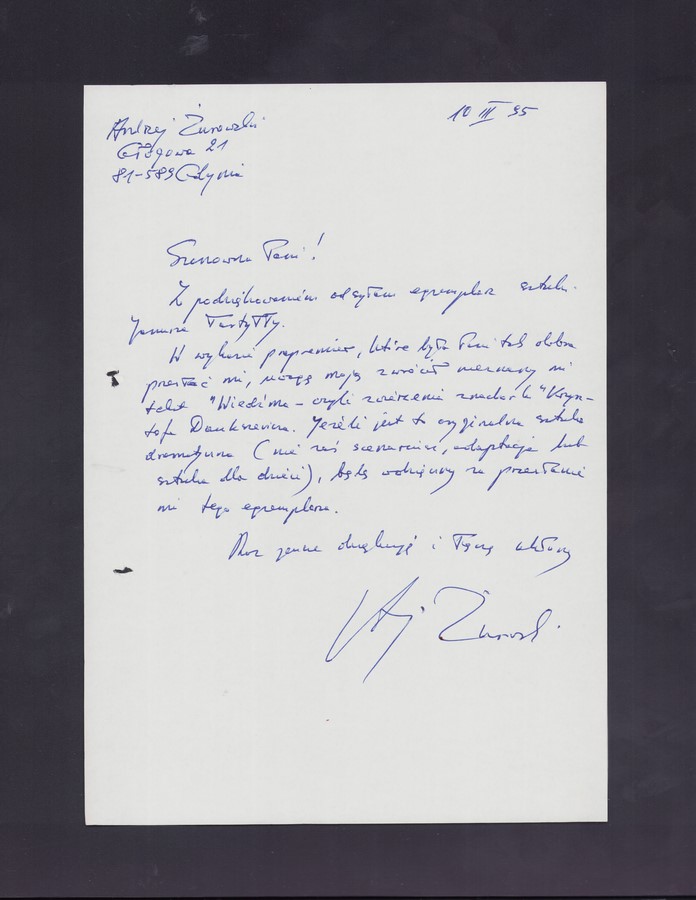 Andrzej Żurawski
Głogowa 21
81-589 Gdynia
10 III 95
Szanowna Pani!
Z podziękowaniem odsyłam egzemplarz sztuki
Janusza
W wykazie prapremier, które była Pani tak dobra
przesłać mi, uwagę moją zwrócił nieznany mi
tekst "Wiedźma - czyli zwierzenia znachorki" Krzysz-
tofa. Jeżeli jest to oryginalna sztuka
dramatyczna (nie zaś scenariusz, adaptacja lub
sztuka dla dzieci), będę wdzięczny za przesłanie
mi tego egzemplarza.
Raz jeszcze dziękuję i łączę ukłony
Żurawski